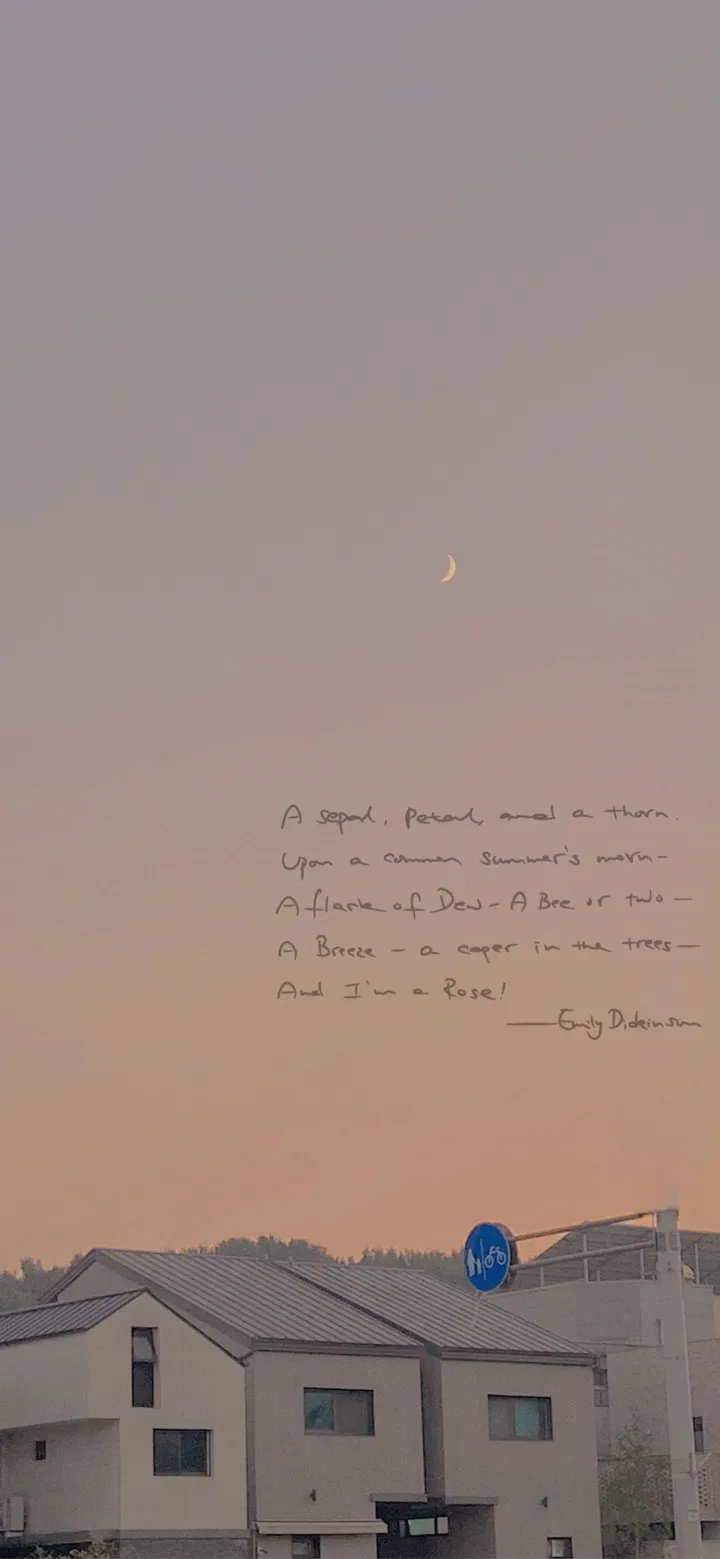 A sepal, petal, and a thorn.
Upon a common summer's morn-
A flask of Dew - A Bee or two —
A Breeze - a caper in the trees —
And I'm a Rose!
— Emily Dickinson